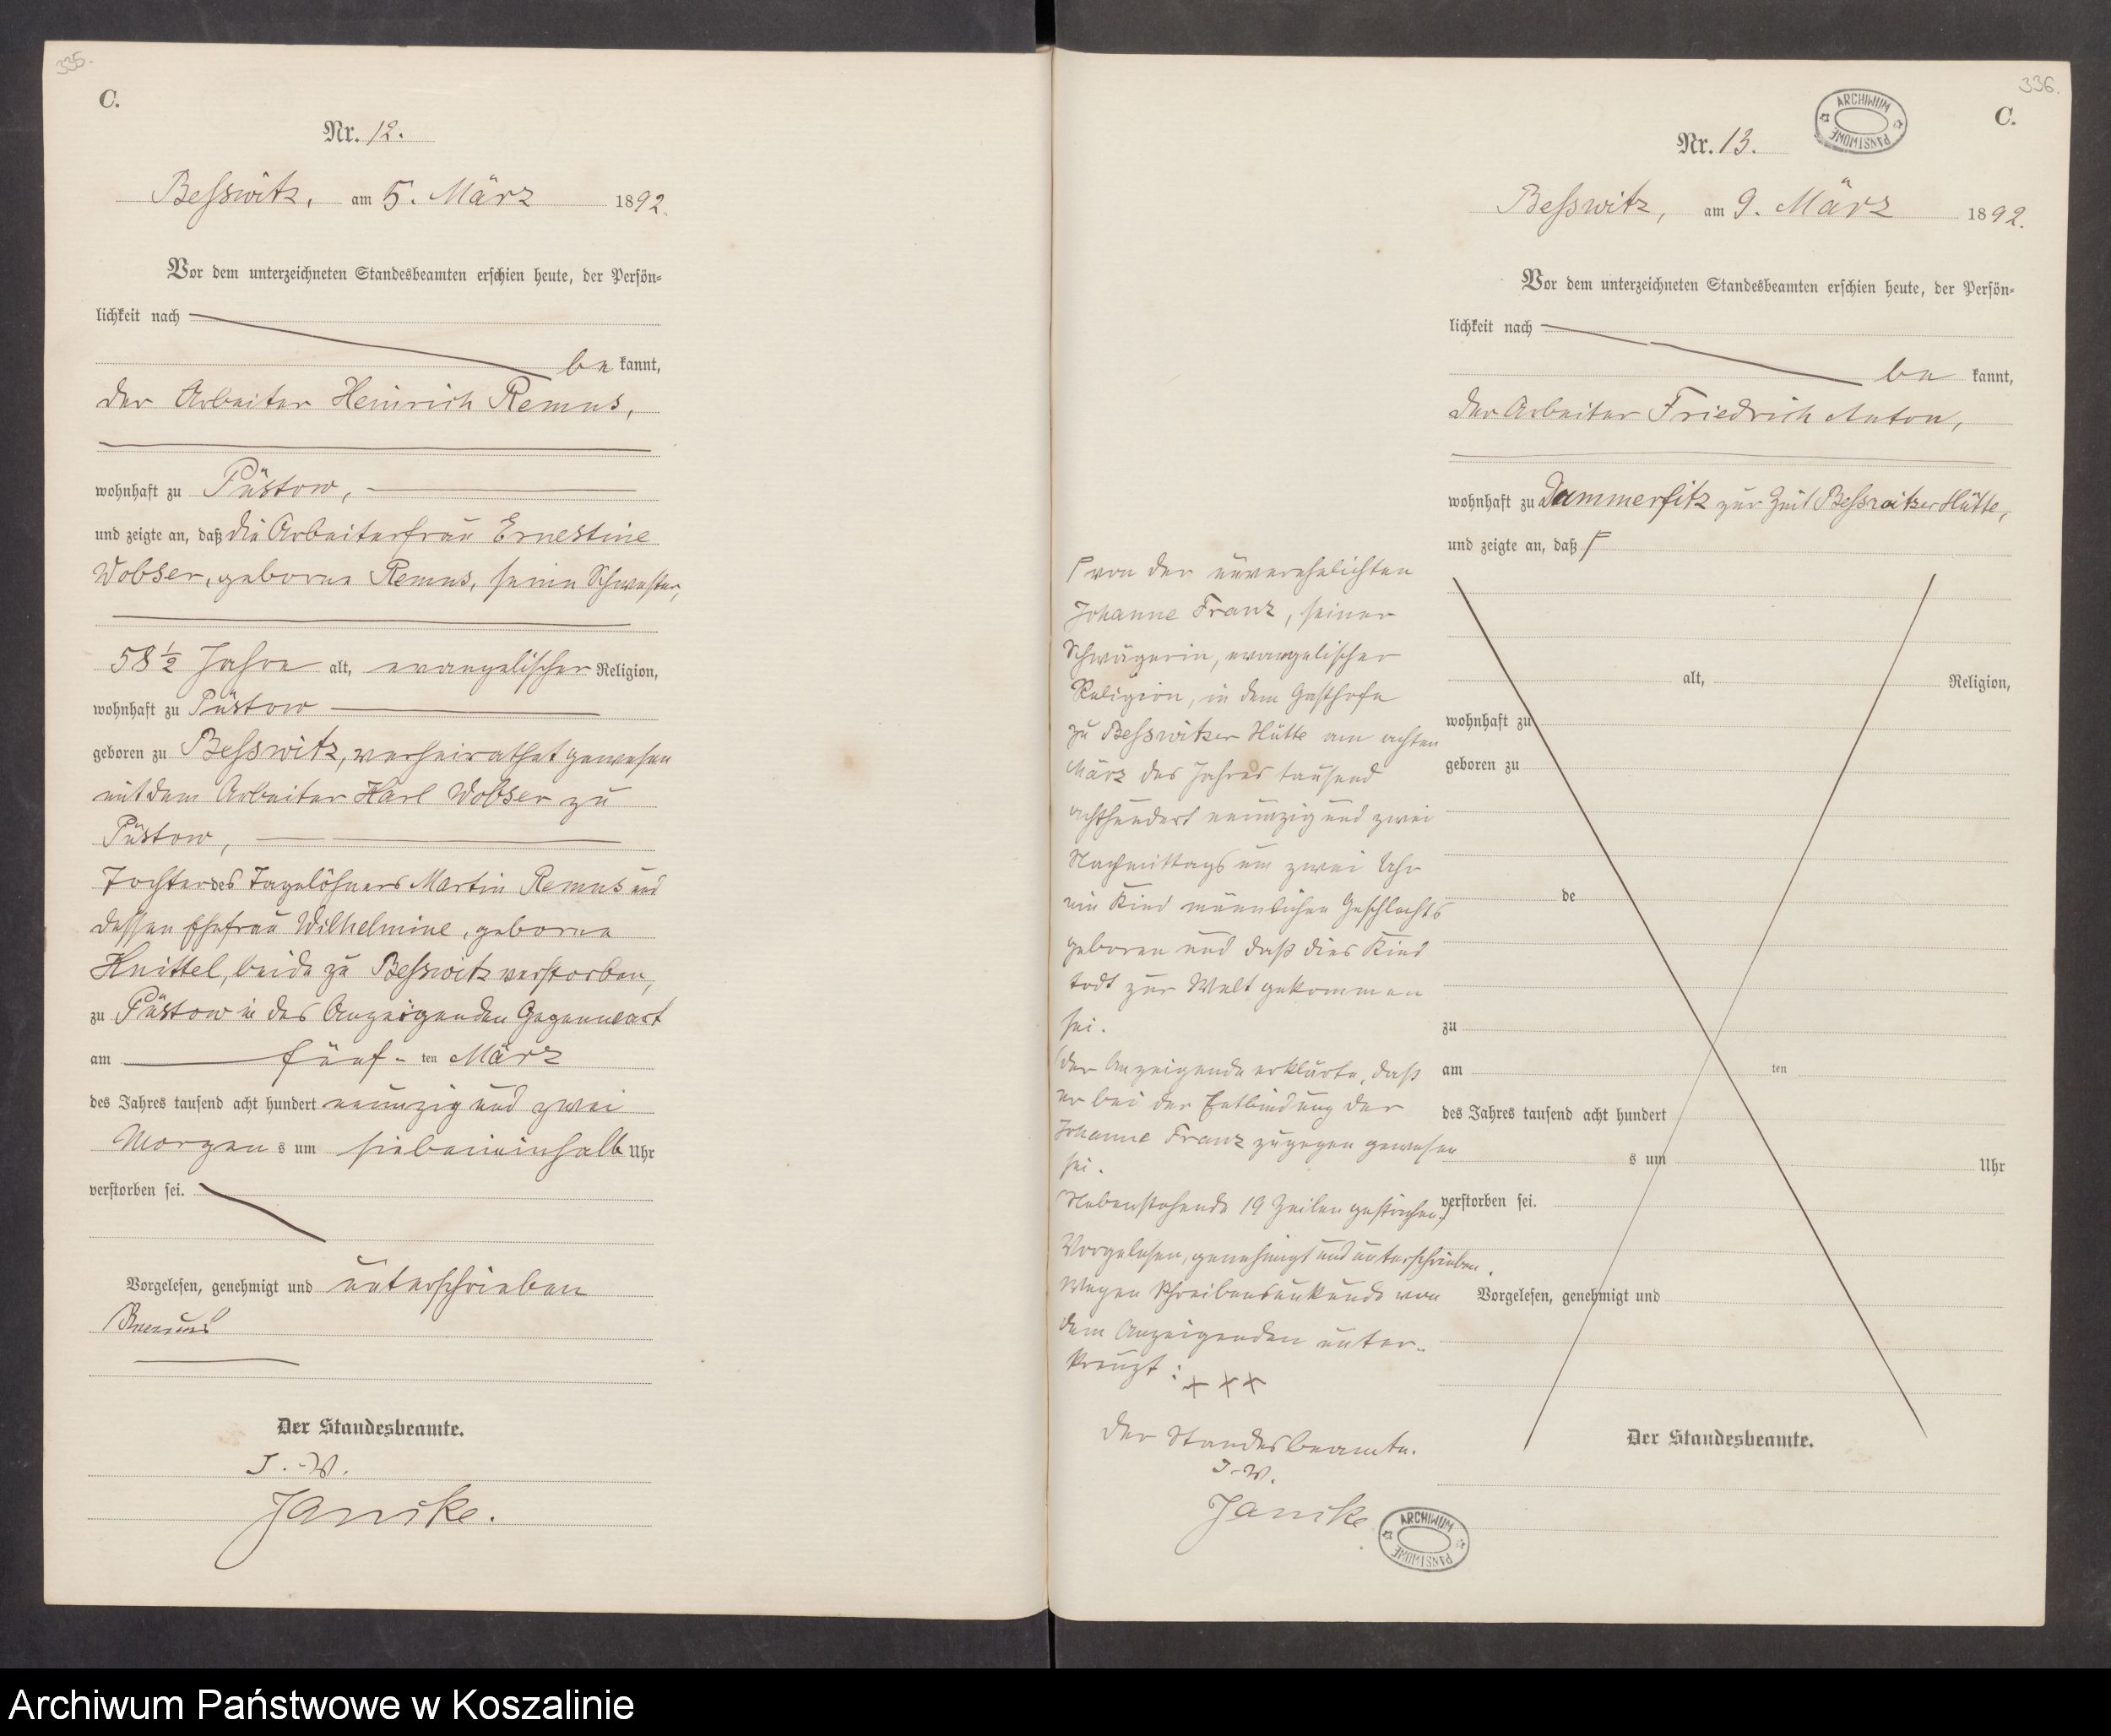 335.
C.
Nr. 12.
Besswitz, am 5. März 1892.
Vor dem unterzeichneten Standesbeamten erschien heute, der Persön-
lichkeit nach
be kannt,
der Arbeiter Heinrich Remus,
wohnhaft zu Püstow,
und zeigte an, daß die Arbeiterfrau Ernestine
Wobser, geborne Remus, seine Schwester,
58 1/2 Jahre alt, evangelischer Religion,
wohnhaft zu Püstow
geboren zu Besswitz, verheirathet gewesen
mit dem Arbeiter Karl Wobser zu
Püstow,
Tochter des Tagelöhners Martin Remus und
dessen Ehefrau Wilhelmine, geborne
Knittel, beide zu Besswitz verstorben,
zu Püstow in des Anzeigenden Gegenwart
am fünf- ten März
des Jahres tausend acht hundert neunzig und zwei
Morgens um siebeneinhalb Uhr
verstorben sei.
Vorgelesen, genehmigt und unterschrieben
Remus
Der Standesbeamte.
I.-V.
Janike.
336.
C.
ARCHIWUM PAŃSTWOWE
Nr. 13.
Besswitz, am 9. März 1892.
Vor dem unterzeichneten Standesbeamten erschien heute, der Persön-
lichkeit nach
be kannt,
der Arbeiter Friedrich Anton,
wohnhaft zu Dammerfitz zur Zeit Besswitzer Hütte,
und zeigte an, daß Γ
Γ von der unverehelichten
Johanne Franz, seiner
Schwägerin, evangelischer
Religion, in dem Gasthofe
zu Besswitzer Hütte am achten
März des Jahres tausend
achthundert neunzig und zwei
Nachmittags um zwei Uhr
ein Kind männlichen Geschlechts
geboren und daß dies Kind
todt zur Welt gekommen
sei.
Der Anzeigende erklärte, daß
er bei der Entbindung der
Johanne Franz zugegen gewesen
sei.
Nebenstehende 19 Zeilen gestrichen.
Vorgelesen, genehmigt und unterschrieben.
Wegen Schreibensunkunde von
dem Anzeigenden unter-
kreuzt:
+++
Der Standesbeamte.
I.-V.
Janike.
ARCHIWUM PAŃSTWOWE
alt, Religion,
wohnhaft zu
geboren zu
de
zu
am ten
des Jahres tausend acht hundert
s um Uhr
verstorben sei.
Vorgelesen, genehmigt und
Der Standesbeamte.
Archiwum Państwowe w Koszalinie